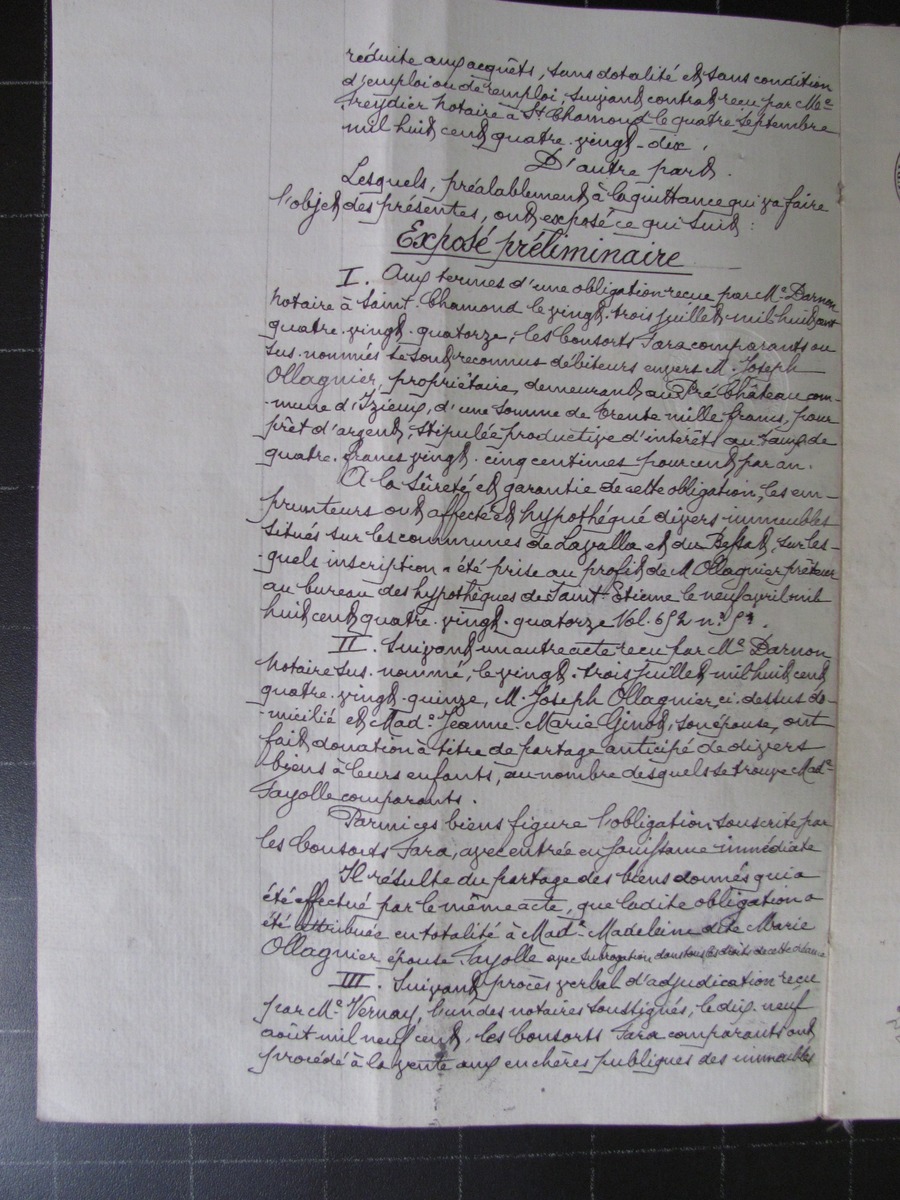 réduite aux acquêts, sans dotalité et sans condition
d'emploi ou de remploi, suivant contrat reçu par Me
Freydier notaire à St Chamond le quatre septembre
mil huit cent quatre-vingt-dix.
D'autre part.
Lesquels, préalablement à la quittance qui va faire
l'objet des présentes, ont exposé ce qui suit :
Exposé préliminaire
I. Aux termes d'une obligation reçue par Me Darnon
notaire à Saint-Chamond le vingt-trois juillet mil huit cent
quatre-vingt-quatorze, les consorts Fara comparants ou
sus-nommés se sont reconnus débiteurs envers M. Joseph
Ollagnier, propriétaire, demeurant au Pré Château com-
-mune d'Izieux, d'une somme de trente mille francs, pour
prêt d'argent, stipulée productive d'intérêts au taux de
quatre francs vingt-cinq centimes pour cent par an.
A la sûreté et garantie de cette obligation, les em-
prunteurs ont affecté et hypothéqué divers immeubles
situés sur les communes de Lavalla et du Bessat, sur les-
-quels inscription a été prise au profit de M. Ollagnier prêteur
au bureau des hypothèques de Saint-Etienne le neuf avril mil
huit cent quatre-vingt-quatorze Vol. 652 n°
II. Suivant un autre acte reçu par Me Darnon
notaire sus-nommé, le vingt-trois juillet mil huit cent
quatre-vingt-quinze, M. Joseph Ollagnier ci-dessus do-
-micilié et Made Jeanne-Marie Ginot, son épouse, ont
fait donation à titre de partage anticipé de divers
biens à leurs enfants, au nombre desquels se trouve Made
Fayolle comparants.
Parmi ces biens figure l'obligation souscrite par
les consorts Fara, avec entrée en jouissance immédiate
Il résulte du partage des biens donnés qui a
été effectué par le même acte, que ladite obligation a
été attribuée en totalité à Made Madeleine dite Marie
Ollagnier épouse Fayolle avec subrogation dans tous les droits de cette créance
III. Suivant procès verbal d'adjudication reçu
par Me Vernay, l'un des notaires soussignés, le dix-neuf
août mil neuf cent, les consorts Fara comparants ont
procédé à la vente aux enchères publiques des immeubles